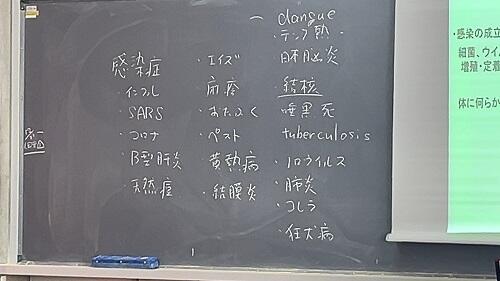 第一
感染症
・インフル
・SARS
・コロナ
・B型肝炎
・天然痘
・エイズ
・おたふく
・ペスト
・黄熱病
・結膜炎
dangue
・デング熱
・日本脳炎
・結核
・tuberculosis
・ノロウイルス
・肺炎
・コレラ
・狂犬病
・感染の成立
細菌、ウイ
増殖・定着
体に何らか